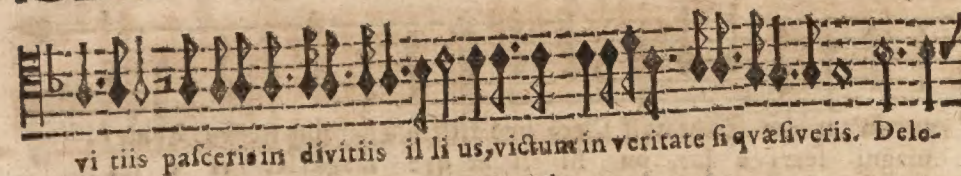 vi tiis paſceris in divitiis il li us, victum in veritate ſi qvæſiveris. Dele-